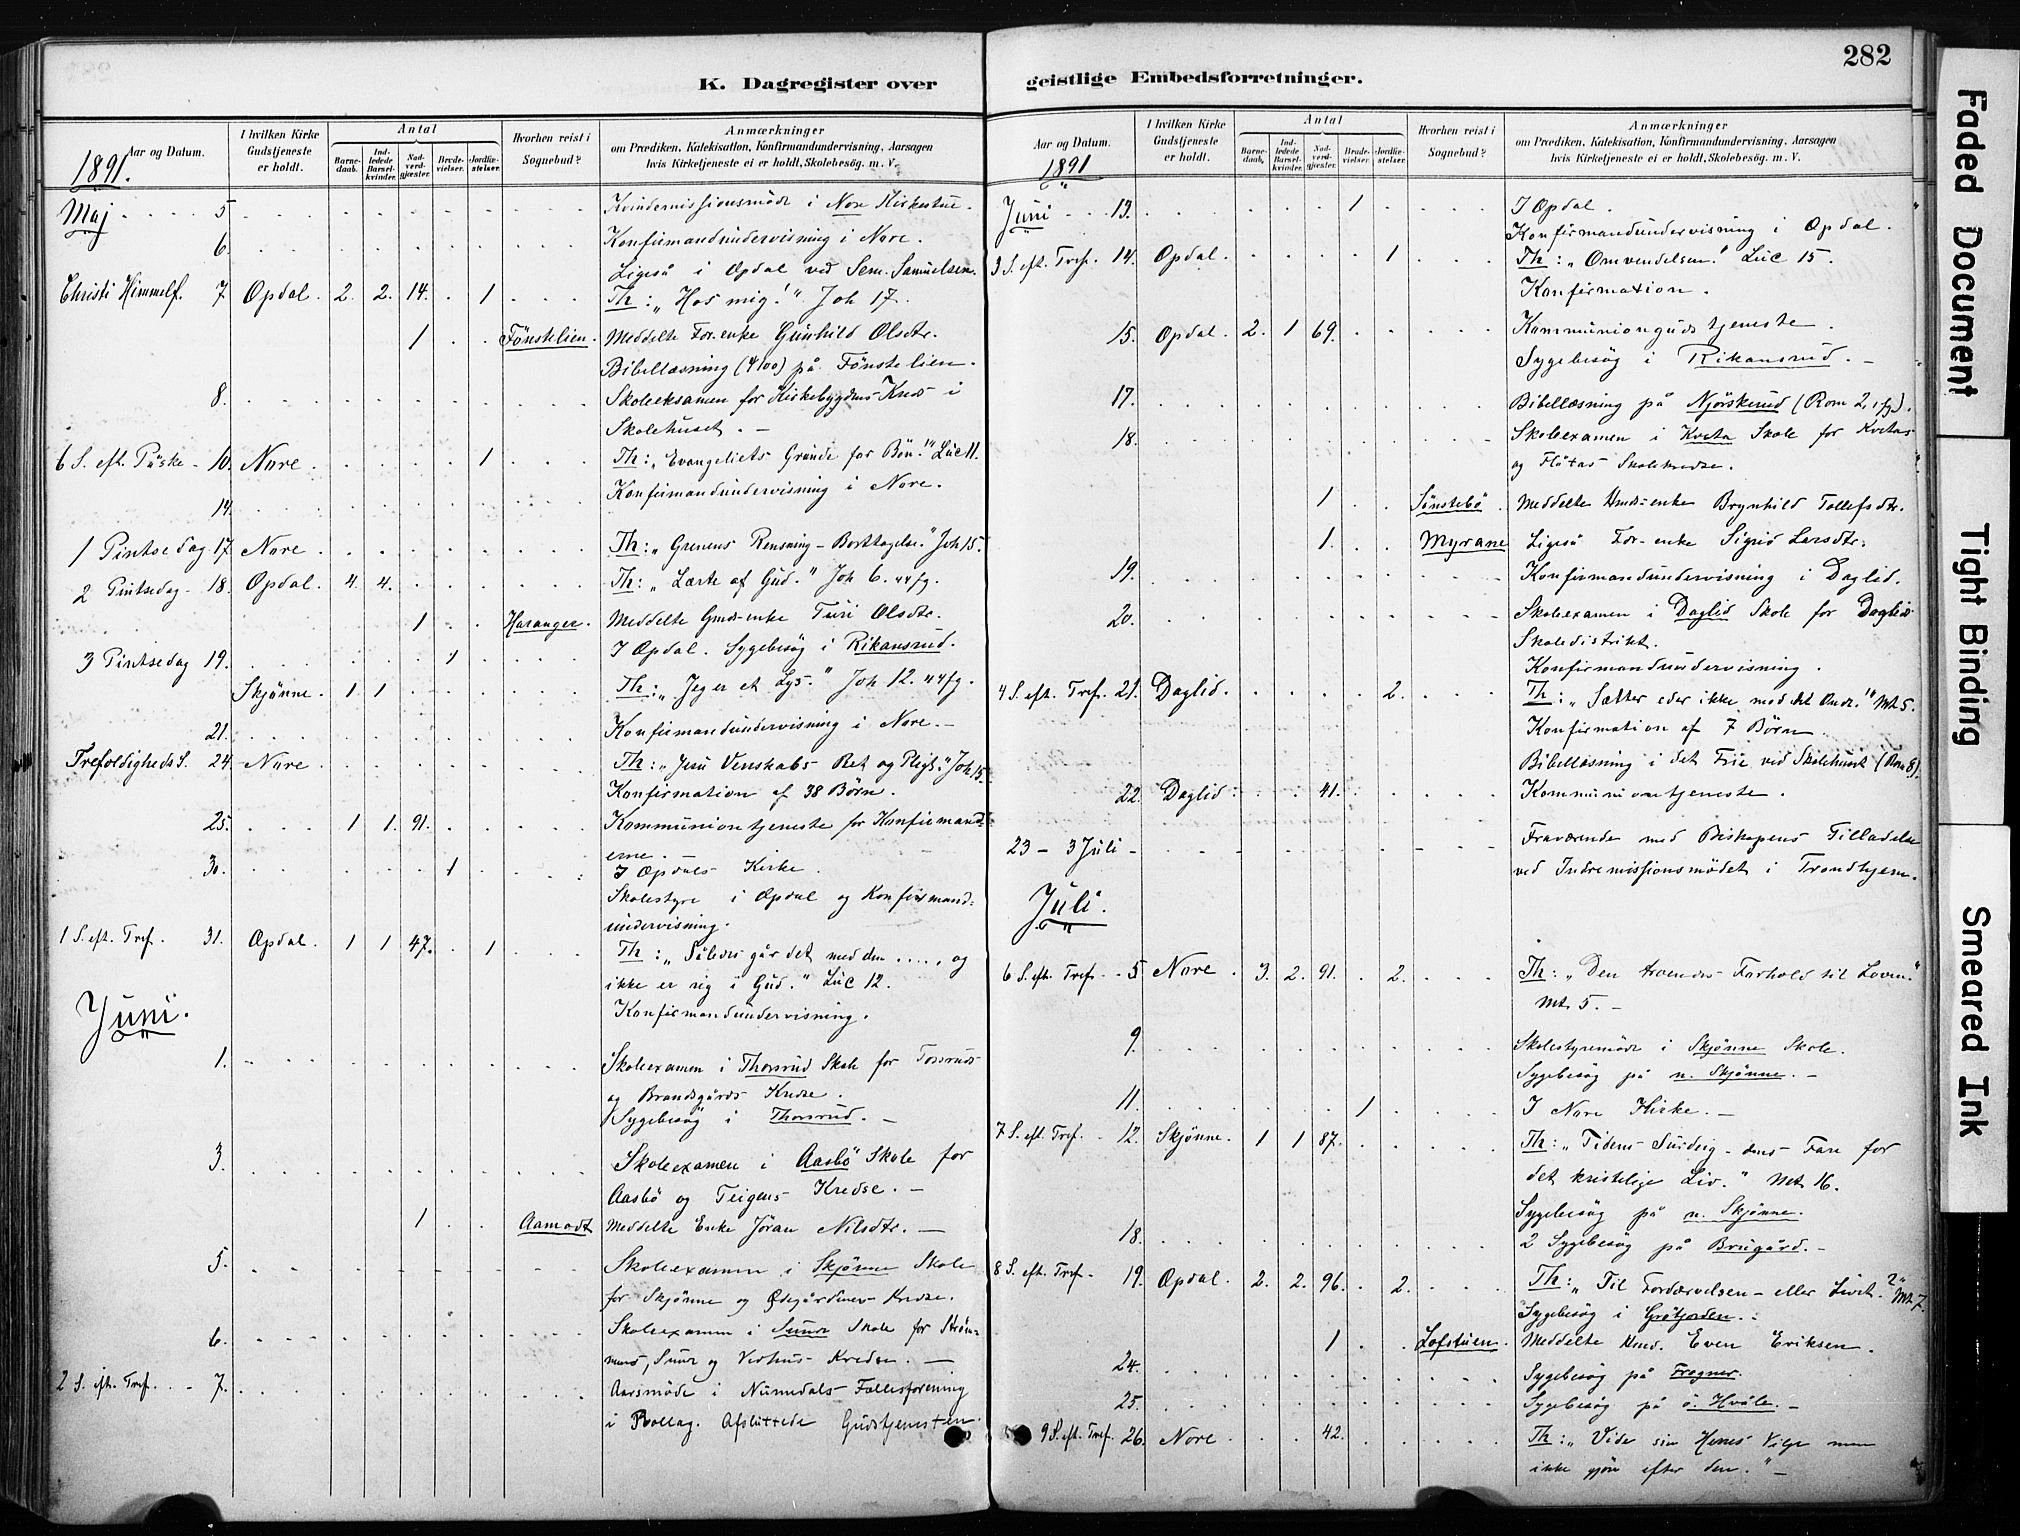 282
K. Dagregister over
geistlige Embedsforretninger.
Aar og Datum.
I hvilken Kirke Gudstjeneste er holdt.
Antal
Barne-daab.
Ind-ledede Barsel-kvinder.
Nad-verd-gjæster.
Brude-vielser.
Jordfæ-stelser.
Hvorhen reist i Sognebud?
Anmærkninger
om Prædiken, Katekisation, Konfirmandundervisning, Aarsagen
hvis Kirketjeneste ei er holdt, Skolebesøg. m. V.
1891.
Maj 5 Kvindemissionsmøde i Nore Kirkestue.
6. Konfirmandundervisning i Nore.
Ligeså i Opdal ved Sem. Samuelsen.
Christi Himmelf. 7 Opdal. 2. 2. 14. 1 Th: "Hos mig!" Joh 17.
1 Fönstelien. Meddelte For. enke Gunhild Olsdtr.
Bibellæsning (4/100) på Fönstelien.
8. Skoleeksamen for Kirkebygdens Kreds i
Skolehuset. -
6 S. eft. Påske - 10. Nore. 1 Th: "Evangeliets Grunde for Bön!" Luc 11.
14. Konfirmandundervisning i Nore.
1 Pintsedag 17. Nore. Th: "Grenens Rensning - Borttagelse." Joh 15.
2 Pintsedag - 18. Opdal. 4. 4. Th: "Lærte af Gud." Joh 6. 44 fg.
1 Haranger. Meddelte Gmds-enke Turi Olsdtr.
3 Pintsedag 19. 1 I Opdal. Sygebesøg i Rikansrud.
Skjönne. 1. 1 Th: "Jeg er et Lys." Joh 12. 44 fg.
21. Konfirmandundervisning i Nore. -
Trefoldigheds S. 24. Nore. Th: "Jesu Venskabs Ret og Pligt." Joh 15.
Konfirmation af 38 Börn.
25. 1 1. 91. Kommuniontjeneste for Konfirmand-
erne. -
30. 1 I Opdals Kirke.
Skolestyre i Opdal og Konfirmand-
undervisning.
1 S. eft. Tref. 31. Opdal. 1 1 47. 1 Th: "Således går det med den ....., og
ikke er rig i Gud." Luc 12.
Konfirmandundervisning.
Juni.
1. Skoleexamen i Thorsrud Skole for Tossruds
og Brandsgårds Kredse.
Sygebesøg i Thorsrud. -
3. Skoleexamen i Aasbö Skole for
Aasbö og Teigens Kredse. -
1 Aamodt Meddelte Enke Jöran Nilsdtr. -
5. Skoleexamen i Skjönne Skole
for Skjönne og Ødegårdenes Kredse.
6. Skoleexamen i Skole for
og Kredse. -
2 S. eft. Tref. - 7. Aarsmöde i Numedals Fællesforening
i Rollag. Afsluttede Gudstjenesten.
Aar og Datum.
I hvilken Kirke Gudstjeneste er holdt.
Antal
Barne-daab.
Ind-ledede Barsel-kvinder.
Nad-verd-gjæster.
Brude-vielser.
Jordfæ-stelser.
Hvorhen reist i Sognebud?
Anmærkninger
om Prædiken, Katekisation, Konfirmandundervisning, Aarsagen
hvis Kirketjeneste ei er holdt, Skolebesøg. m. V.
1891
Juni 13. 1 I Opdal.
Konfirmandundervisning i Opdal.
3 S. eft. Tref. 14. Opdal. 1 Th: "Omvendelsen." Luc 15.
Konfirmation.
15. Opdal. 2. 1 69. Kommuniongudstjeneste.
Sygebesøg i Rikansrud. -
17. Bibellæsning på Njörskerud (Rom 2, 1 fg).
18. Skoleexamen i Kveta Skole for Kvetas
og Flåtas Skolekredse.
1 Sönstebö. Meddelte enke Brynhild Tollefsdtr.
1. Myrane Ligeså For. enke Sigrid Larsdtr.
19. Konfirmandundervisning i Daglid.
20. Skoleexamen i Daglid Skole for Daglid
Skoledistrikt.
Konfirmandundervisning.
4 S. eft. Tref. 21. Daglid. 2. Th: "Sætter eder ikke mod det Onde!" Mt 5.
Konfirmation af 7 Börn.
Bibellæsning i det Frie ved Skolehuset (Rom 8).
22. Daglid. 41. Kommuniontjeneste.
23 - 3 Juli - Fraværende med Biskopens Tilladelse
ved Indremissionsmödet i Trondhjem.
Juli.
6 S. eft. Tref. - 5. Nore. 3. 2. 91. 2. Th: "Den troendes Forhold til Loven."
Mt 5. -
9. Skolestyremöde i Skjönne Skole.
Sygebesøg på n. Skjönne. -
11. 1 I Nore Kirke. -
7 S. eft. Tref. - 12. Skjönne. 1 1 87. Th: "Tidens Surdeig - dens Fare for
det kristelige Liv." Mt 16.
Sygebesøg på n. Skjönne.
18. 2 Sygebesøg på Brugård. -
8 S. eft. Tref. - 19. Opdal. 2. 2. 96. 2. Th: "Til Fordærvelsen - eller Livet?" Mt 7.
Sygebesøg i Grötjorden.
1 Lofstuen. Meddelte Kmd. Even Eriksen.
24. Sygebesøg på Frogner.
25. Sygebesøg på ö. Hvåle. -
9 S. eft. Tref. 26. Nore. 42. Th: "Vide sin Herres Vilje men
ikke gjöre efter den." -
Faded Document
Tight Binding
Smeared Ink